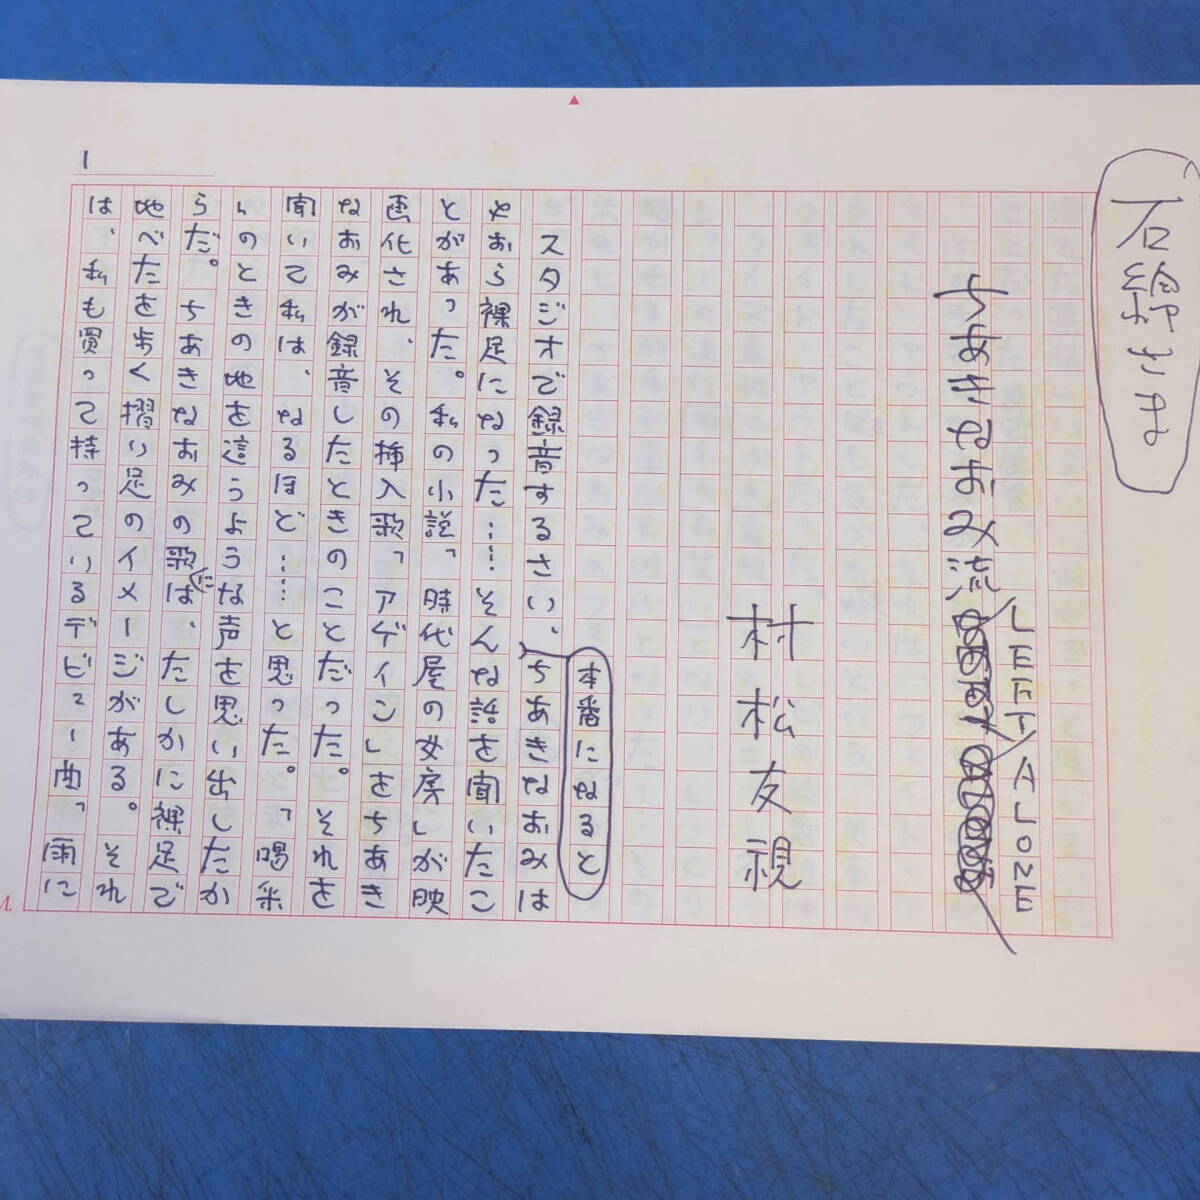 石綿さま
ちあきなおみ流LEFT ALONE
村松友視
本番になると
スタジオで録音するさい、ちあきなおみは
やおら裸足になった……そんな話を聞いたこ
とがあった。私の小説「時代屋の女房」が映
画化され、その挿入歌「アゲイン」をちあき
なおみが録音したときのことだった。それを
聞いて私は、なるほど……と思った。「喝采
」のときの地を這うような声を思い出したか
らだ。ちあきなおみの歌には、たしかに裸足で
地べたを歩く摺り足のイメージがある。それ
は、私も買って持っているデビュー曲「雨に
1